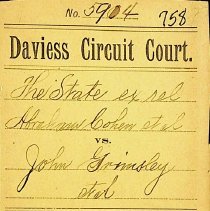 No. 5904 758
Daviess Circuit Court.
The State ex rel
Abraham Cohen et al
vs.
John Grimsley
et al